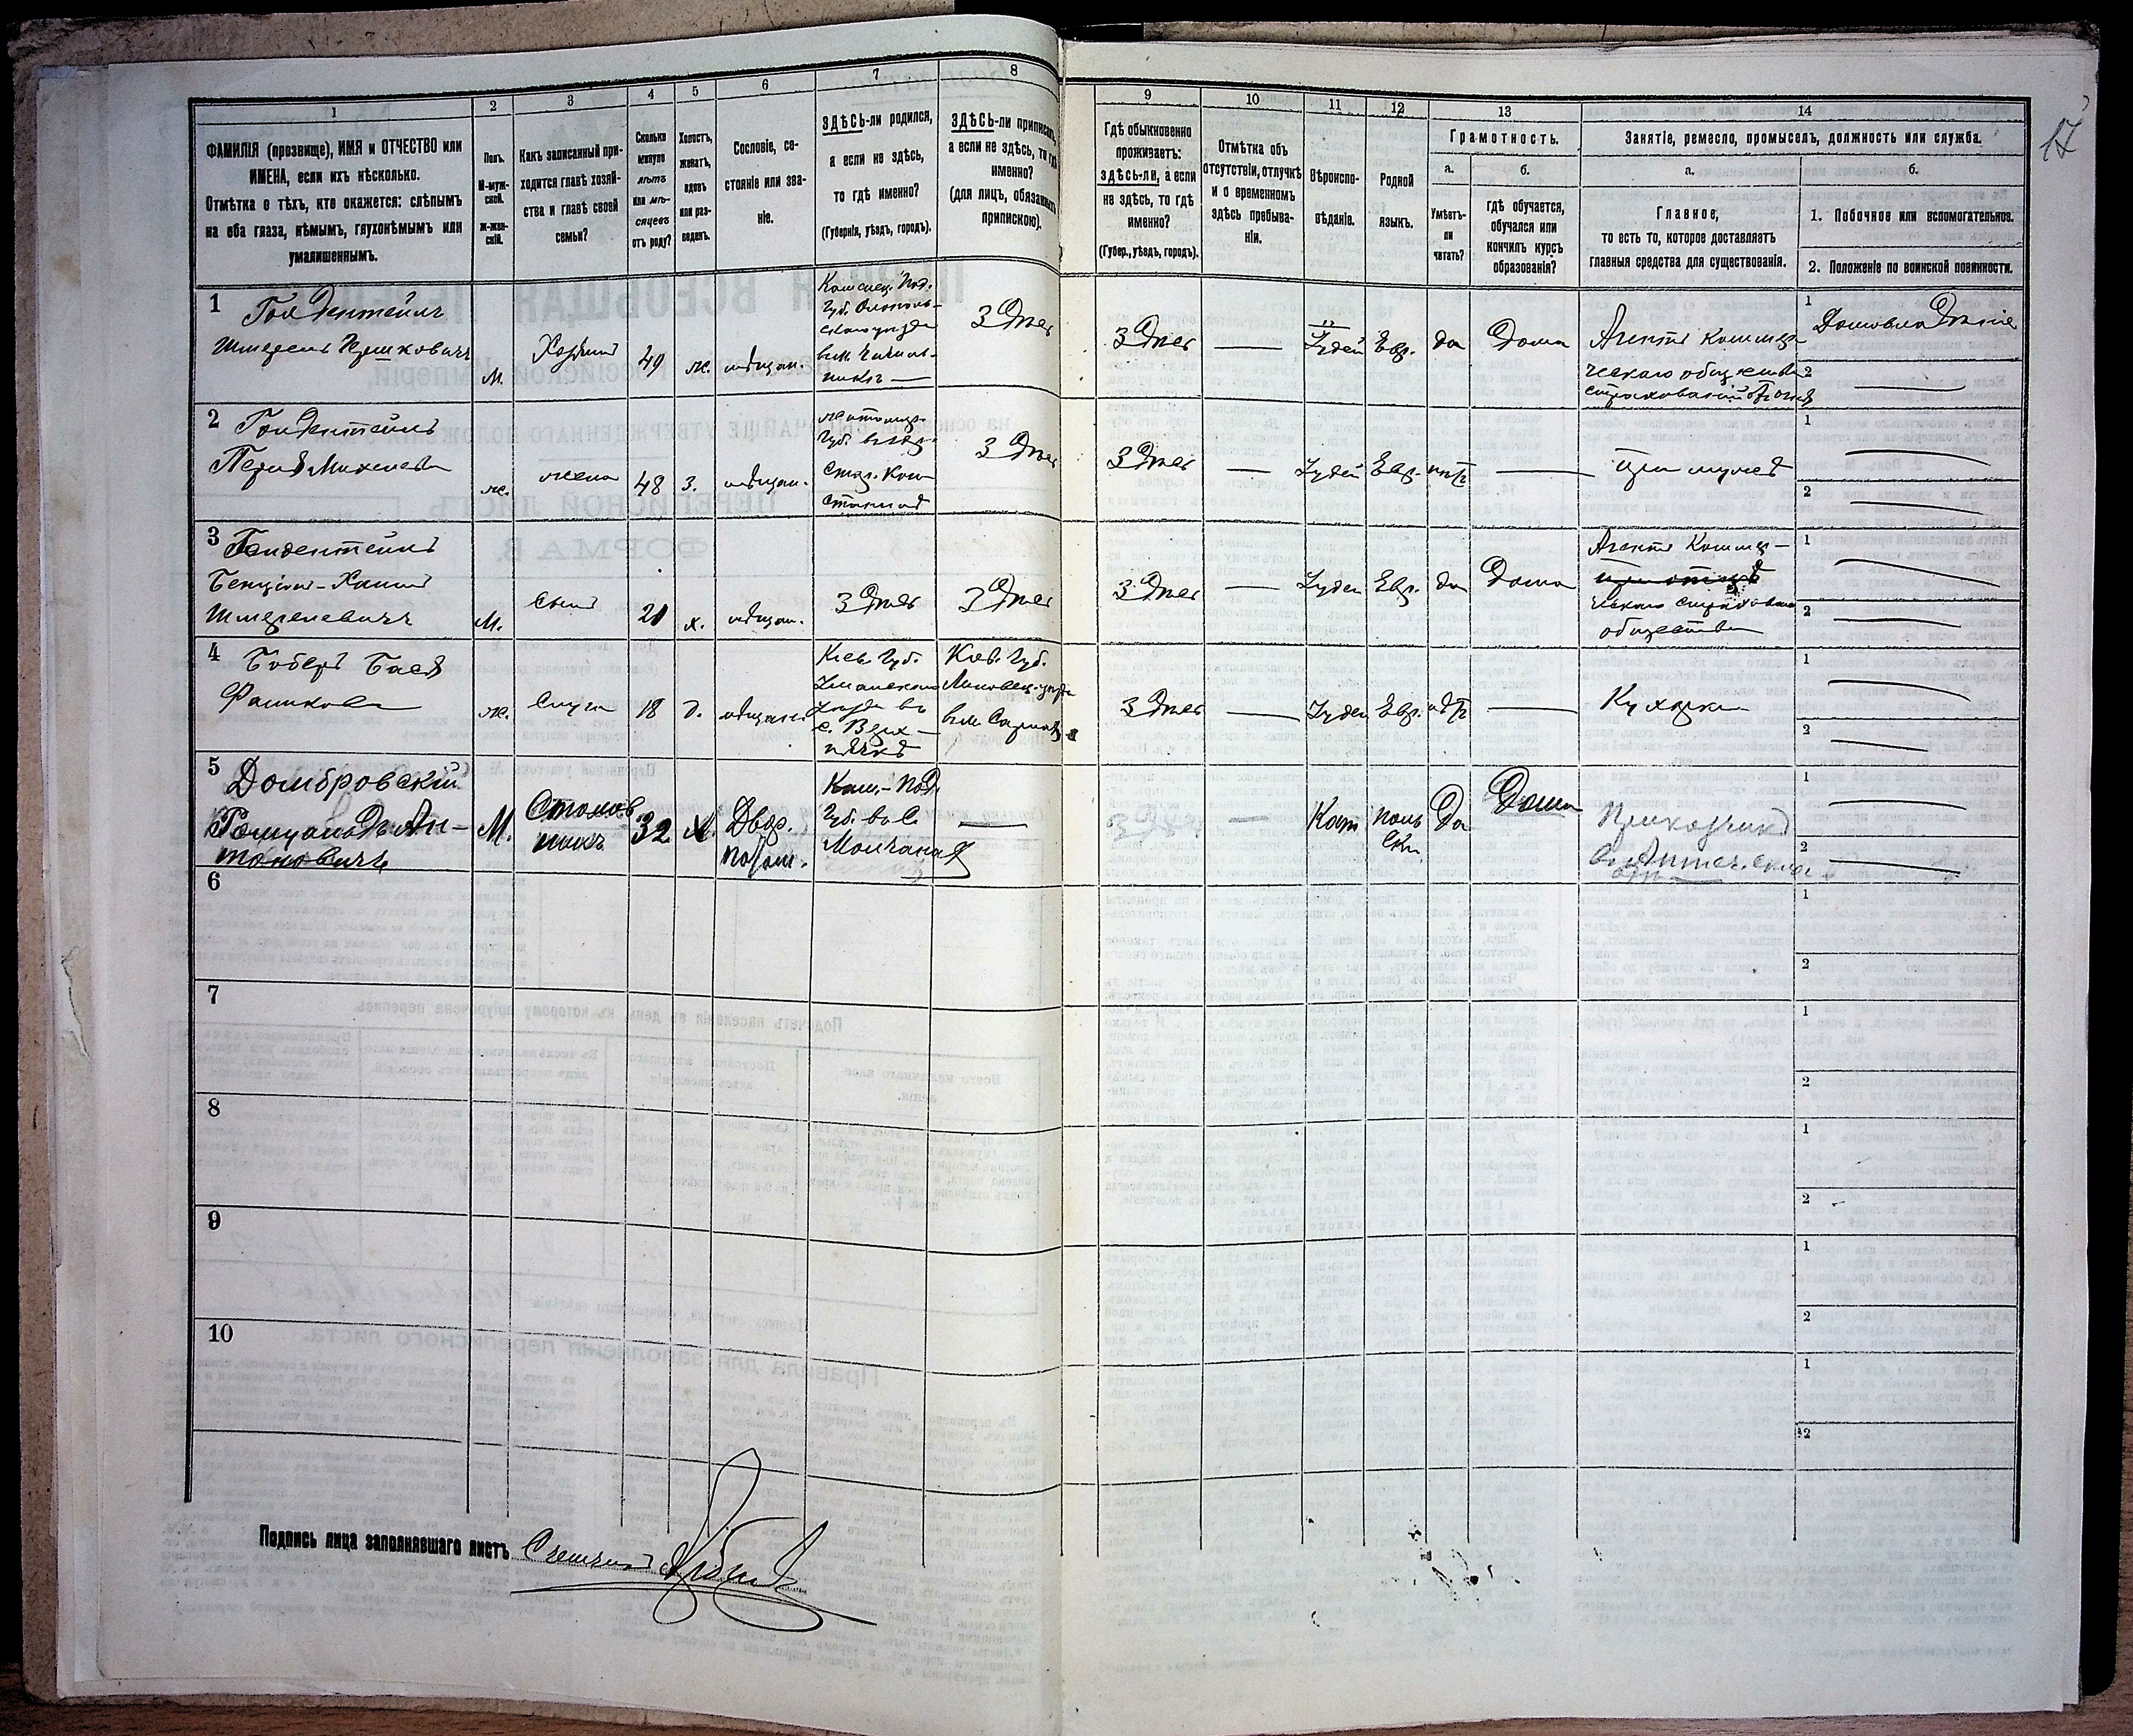 17
1
ФАМИЛІЯ (прозвище), ИМЯ и ОТЧЕСТВО или
ИМЕНА, если ихъ нѣсколько.
Отмѣтка о тѣхъ, кто окажется: слѣпымъ
на оба глаза, нѣмымъ, глухонѣмымъ или
умалишеннымъ.
2
Полъ.
М-муж-
ской.
Ж-жен-
скій.
3
Какъ записанный при-
ходится главѣ хозяй-
ства и главѣ своей
семьи?
4
Сколько
минуло
лѣтъ
или мѣ-
сяцевъ
отъ роду?
5
Холостъ,
женатъ,
вдовъ
или раз-
веденъ.
6
Сословіе, со-
стояніе или зва-
ніе.
7
ЗДѢСЬ-ли родился,
а если не здѣсь,
то гдѣ именно?
(Губернія, уѣздъ, городъ).
8
ЗДѢСЬ-ли приписанъ,
а если не здѣсь, то гдѣ
именно?
(для лицъ, обязанныхъ
припискою).
9
Гдѣ обыкновенно
проживаетъ:
здѣсь-ли, а если
не здѣсь, то гдѣ
именно?
(Губер., уѣздъ, городъ).
10
Отмѣтка объ
отсутствіи, отлучкѣ
и о временномъ
здѣсь пребыва-
ніи.
11
Вѣроиспо-
вѣданіе.
12
Родной
языкъ.
13
Грамотность.
а.
Умѣетъ-
ли
читать?
б.
гдѣ обучается,
обучался или
кончилъ курсъ
образованія?
14
Занятіе, ремесло, промыселъ, должность или служба.
а.
Главное,
то есть то, которое доставляетъ
главныя средства для существованія.
б.
1. Побочное или вспомогательное.
2. Положеніе по воинской повинности.
1
Гольдентейнъ
М.
Хозяинъ
49
ж.
мѣщан.
Каменец. Под.
Губ.
3дѣсь
3дѣсь
Іудей
Евр.
да
Дома
Агентъ Коммер-
ческаго общества
1
2
2
Гольдентейнъ
ж.
жена
48
З.
мѣщан.
3дѣсь
3дѣсь
Іудей
Евр.
нѣтъ
при мужѣ
1
2
3
Гольдентейнъ
Бенціон-Хаимъ
Шмерелевичъ
М.
сынъ
21
х.
мѣщан.
3дѣсь
3дѣсь
3дѣсь
Іудей
Евр.
да
Дома
Агентъ Коммер-
ческаго страхового
общества
1
2
4
Боберъ Бася
ж.
Слуга
18
д.
мѣщан.
Кіев. Губ.
Уманскаго
уѣзда въ
с. Верх-
нячкѣ
Кіев. Губ.
Липовец. уѣзда
3дѣсь
Іудей
Евр.
нѣтъ
Кухарка
1
2
5
Домбровскій
Ромуальдъ Ан-
тоновичъ
М.
Столов-
никъ
32
х.
Двор.
потом.
Кам.-Под.
Губ. въ с.
3дѣсь
Кат
поль
ски
Да
Дома
Приказчикъ
1
2
6
1
2
7
1
2
8
1
2
9
1
2
10
1
2
Подпись лица заполнявшаго листъ Счетчикъ